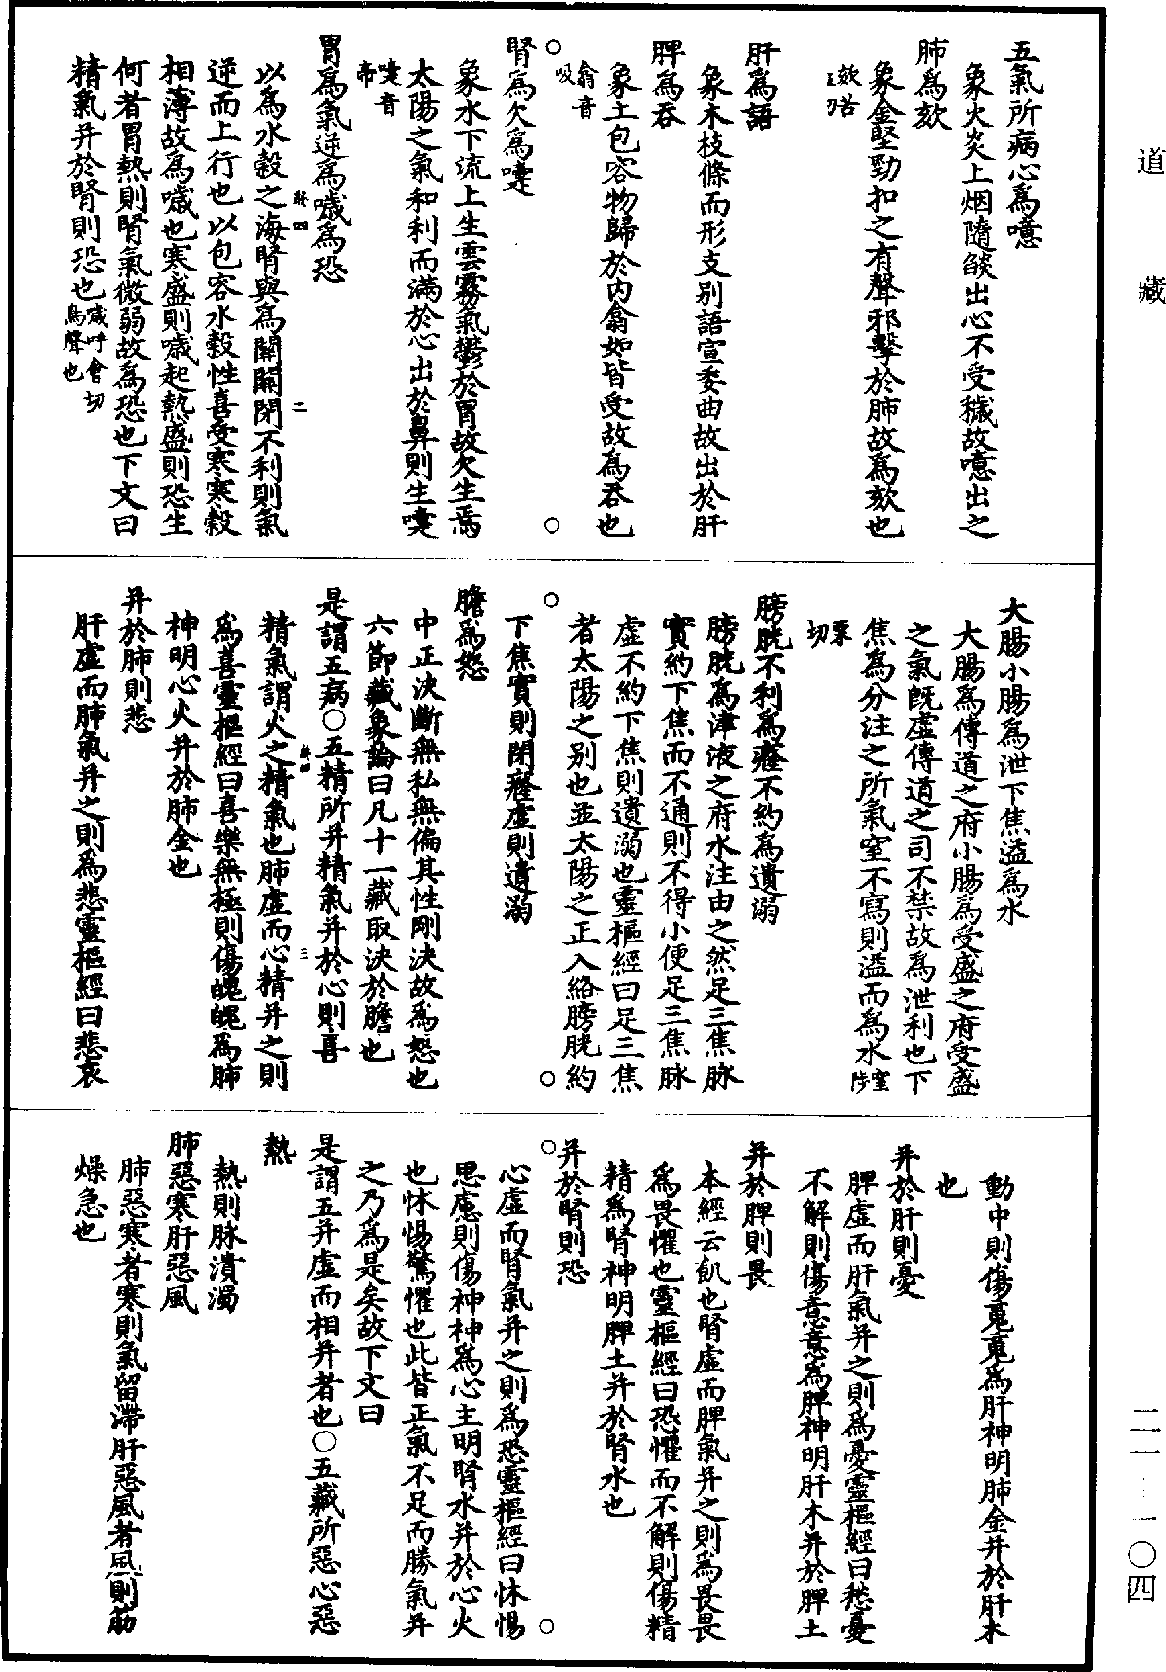 道藏
二一—一〇四
五氣所病心爲噫
象火炎上烟隨燄出心不受穢故噫出之
肺爲欬
象金堅勁扣之有聲邪擊於肺故爲欬也
欬苦
肝爲語
象木枝條而形支别語宣委曲故出於肝
脾爲吞
象土包容物歸於内翕如皆受故爲吞也
翕音
吸
腎爲欠爲嚏
象水下流上生雲霧氣鬱於胃故欠生焉
太陽之氣和利而滿於心出於鼻則生嚏
嚏音
帝
胃爲氣逆爲噦爲恐
以爲水穀之海腎與爲關關閉不利則氣
逆而上行也以包容水穀性喜受寒寒穀
相薄故爲噦也寒盛則噦起熱盛則恐生
何者胃熱則腎氣微弱故爲恐也下文曰
精氣并於腎則恐也
噦呼會切
鳥聲也
大腸小腸爲泄下焦溢爲水
大腸爲傳道之府小腸爲受盛之府受盛
之氣既虚傳道之司不禁故爲泄利也下
焦爲分注之所氣窒不寫則溢而爲水
窒陟
栗切
膀胱不利爲癃不約爲遺溺
膀胱爲津液之府水注由之然足三焦脉
實約下焦而不通則不得小便足三焦脉
虚不約下焦則遺溺也靈樞經曰足三焦
者太陽之别也並太陽之正入絡膀胱約
下焦實則閉癃虚則遺溺
膽爲怒
中正決斷無私無偏其性剛決故爲怒也
六節藏象論曰凡十一藏取決於膽也
是謂五病〇五精所并精氣并於心則喜
精氣謂火之精氣也肺虚而心精并之則
爲喜靈樞經曰喜樂無極則傷魄魄爲肺
神明心火并於肺金也
并於肺則悲
肝虚而肺氣并之則爲悲靈樞經曰悲哀
動中則傷䰟䰟爲肝神明肺金并於肝木
也
并於肝則憂
脾虚而肝氣并之則爲憂靈樞經曰愁憂
不解則傷意意爲脾神明肝木并於脾土
并於脾則畏
本經云飢也腎虚而脾氣并之則爲畏畏
爲畏懼也靈樞經曰恐懼而不解則傷精
精爲腎神明脾土并於腎水也
并於腎則恐
心虚而腎氣并之則爲恐靈樞經曰怵惕
思慮則傷神神爲心主明腎水并於心火
也怵惕驚懼也此皆正氣不足而勝氣并
之乃爲是矣故下文曰
是謂五并虚而相并者也〇五藏所惡心惡
熱
熱則脉潰濁
肺惡寒肝惡風
肺惡寒者寒則氣留滯肝惡風者風則筋
燥急也